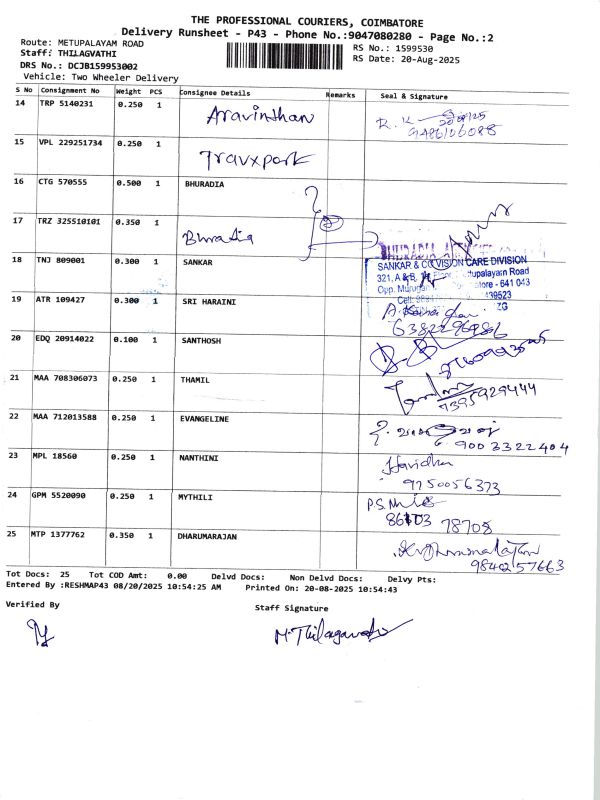 THE PROFESSIONAL COURIERS, COIMBATORE
Delivery Runsheet - P43 - Phone No.:9047080280 - Page No.:2
Route: METUPALAYAM ROAD
RS No.: 1599530
Staff: THILAGVATHI
RS Date: 20-Aug-2025
DRS No.: DCJB159953002
Vehicle: Two Wheeler Delivery
S No Consignment No Weight PCS Consignee Details Remarks Seal & Signature
14 TRP 5140231 0.250 1 Aravinthan R. K 20/08/25
9486106088
15 VPL 229251734 0.250 1 Travxpark
16 CTG 570555 0.500 1 BHURADIA
17 TRZ 325510101 0.350 1 Bhuradia
BHURADIA AGENCIES
18 TNJ 809001 0.300 1 SANKAR
SANKAR & CO VISION CARE DIVISION
321, A & B, Floor, Mettupalayam Road
Opp. Murugan - 641 043
Cell:
19 ATR 109427 0.300 1 SRI HARAINI
6382296986
20 EDQ 20914022 0.100 1 SANTHOSH
21 MAA 708306073 0.250 1 THAMIL
7395929444
22 MAA 712013588 0.250 1 EVANGELINE
9003322404
23 MPL 18560 0.250 1 NANTHINI
Haridha
9750056373
24 GPM 5520090 0.250 1 MYTHILI P.S.
86103 78708
25 MTP 1377762 0.350 1 DHARUMARAJAN
9840257663
Tot Docs: 25 Tot COD Amt: 0.00 Delvd Docs: Non Delvd Docs: Delvy Pts:
Entered By :RESHMAP43 08/20/2025 10:54:25 AM Printed On: 20-08-2025 10:54:43
Verified By Staff Signature
M. Thilagavathi